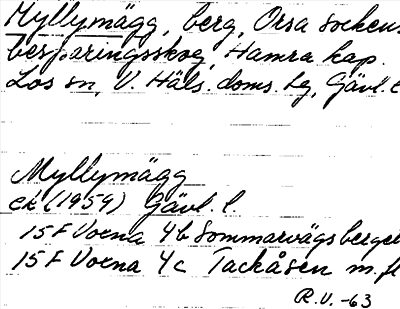 Myllymägg, berg, Orsa sockens
besparingsskog, Hamra kap.
Los sn, V. Häls. doms. hg, Gävl. l
Myllymägg
ek (1959) Gävl. l.
15 F Voxna 4b Sommarvägsberget
15 F Voxna 4c Tackåsen m. fl
R.V. -63